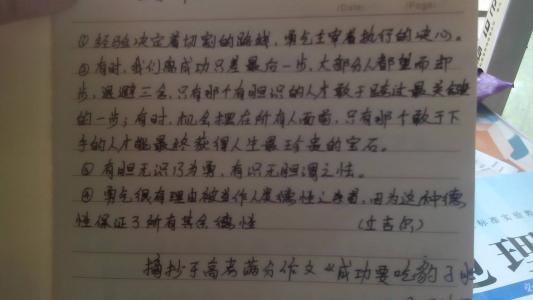 /Date: /Page:
①经验决定着切割的路线，勇气主宰着执行的决心。
②有时，我们离成功只差最后一步，大部分人都望而却
步，退避三舍，只有那个有胆识的人才敢于踏过最关键
的一步；有时，机会摆在所有人面前，只有那个敢于下
手的人才能最终获得人生最珍贵的宝石。
③有胆无识乃为勇，有识无胆谓之怯。
④勇气很有理由被当作人类德性之首，因为这种德
性保证了所有其余德性 (丘吉尔)
摘抄于高考满分作文《成功要吃豹子
标准实验教
理